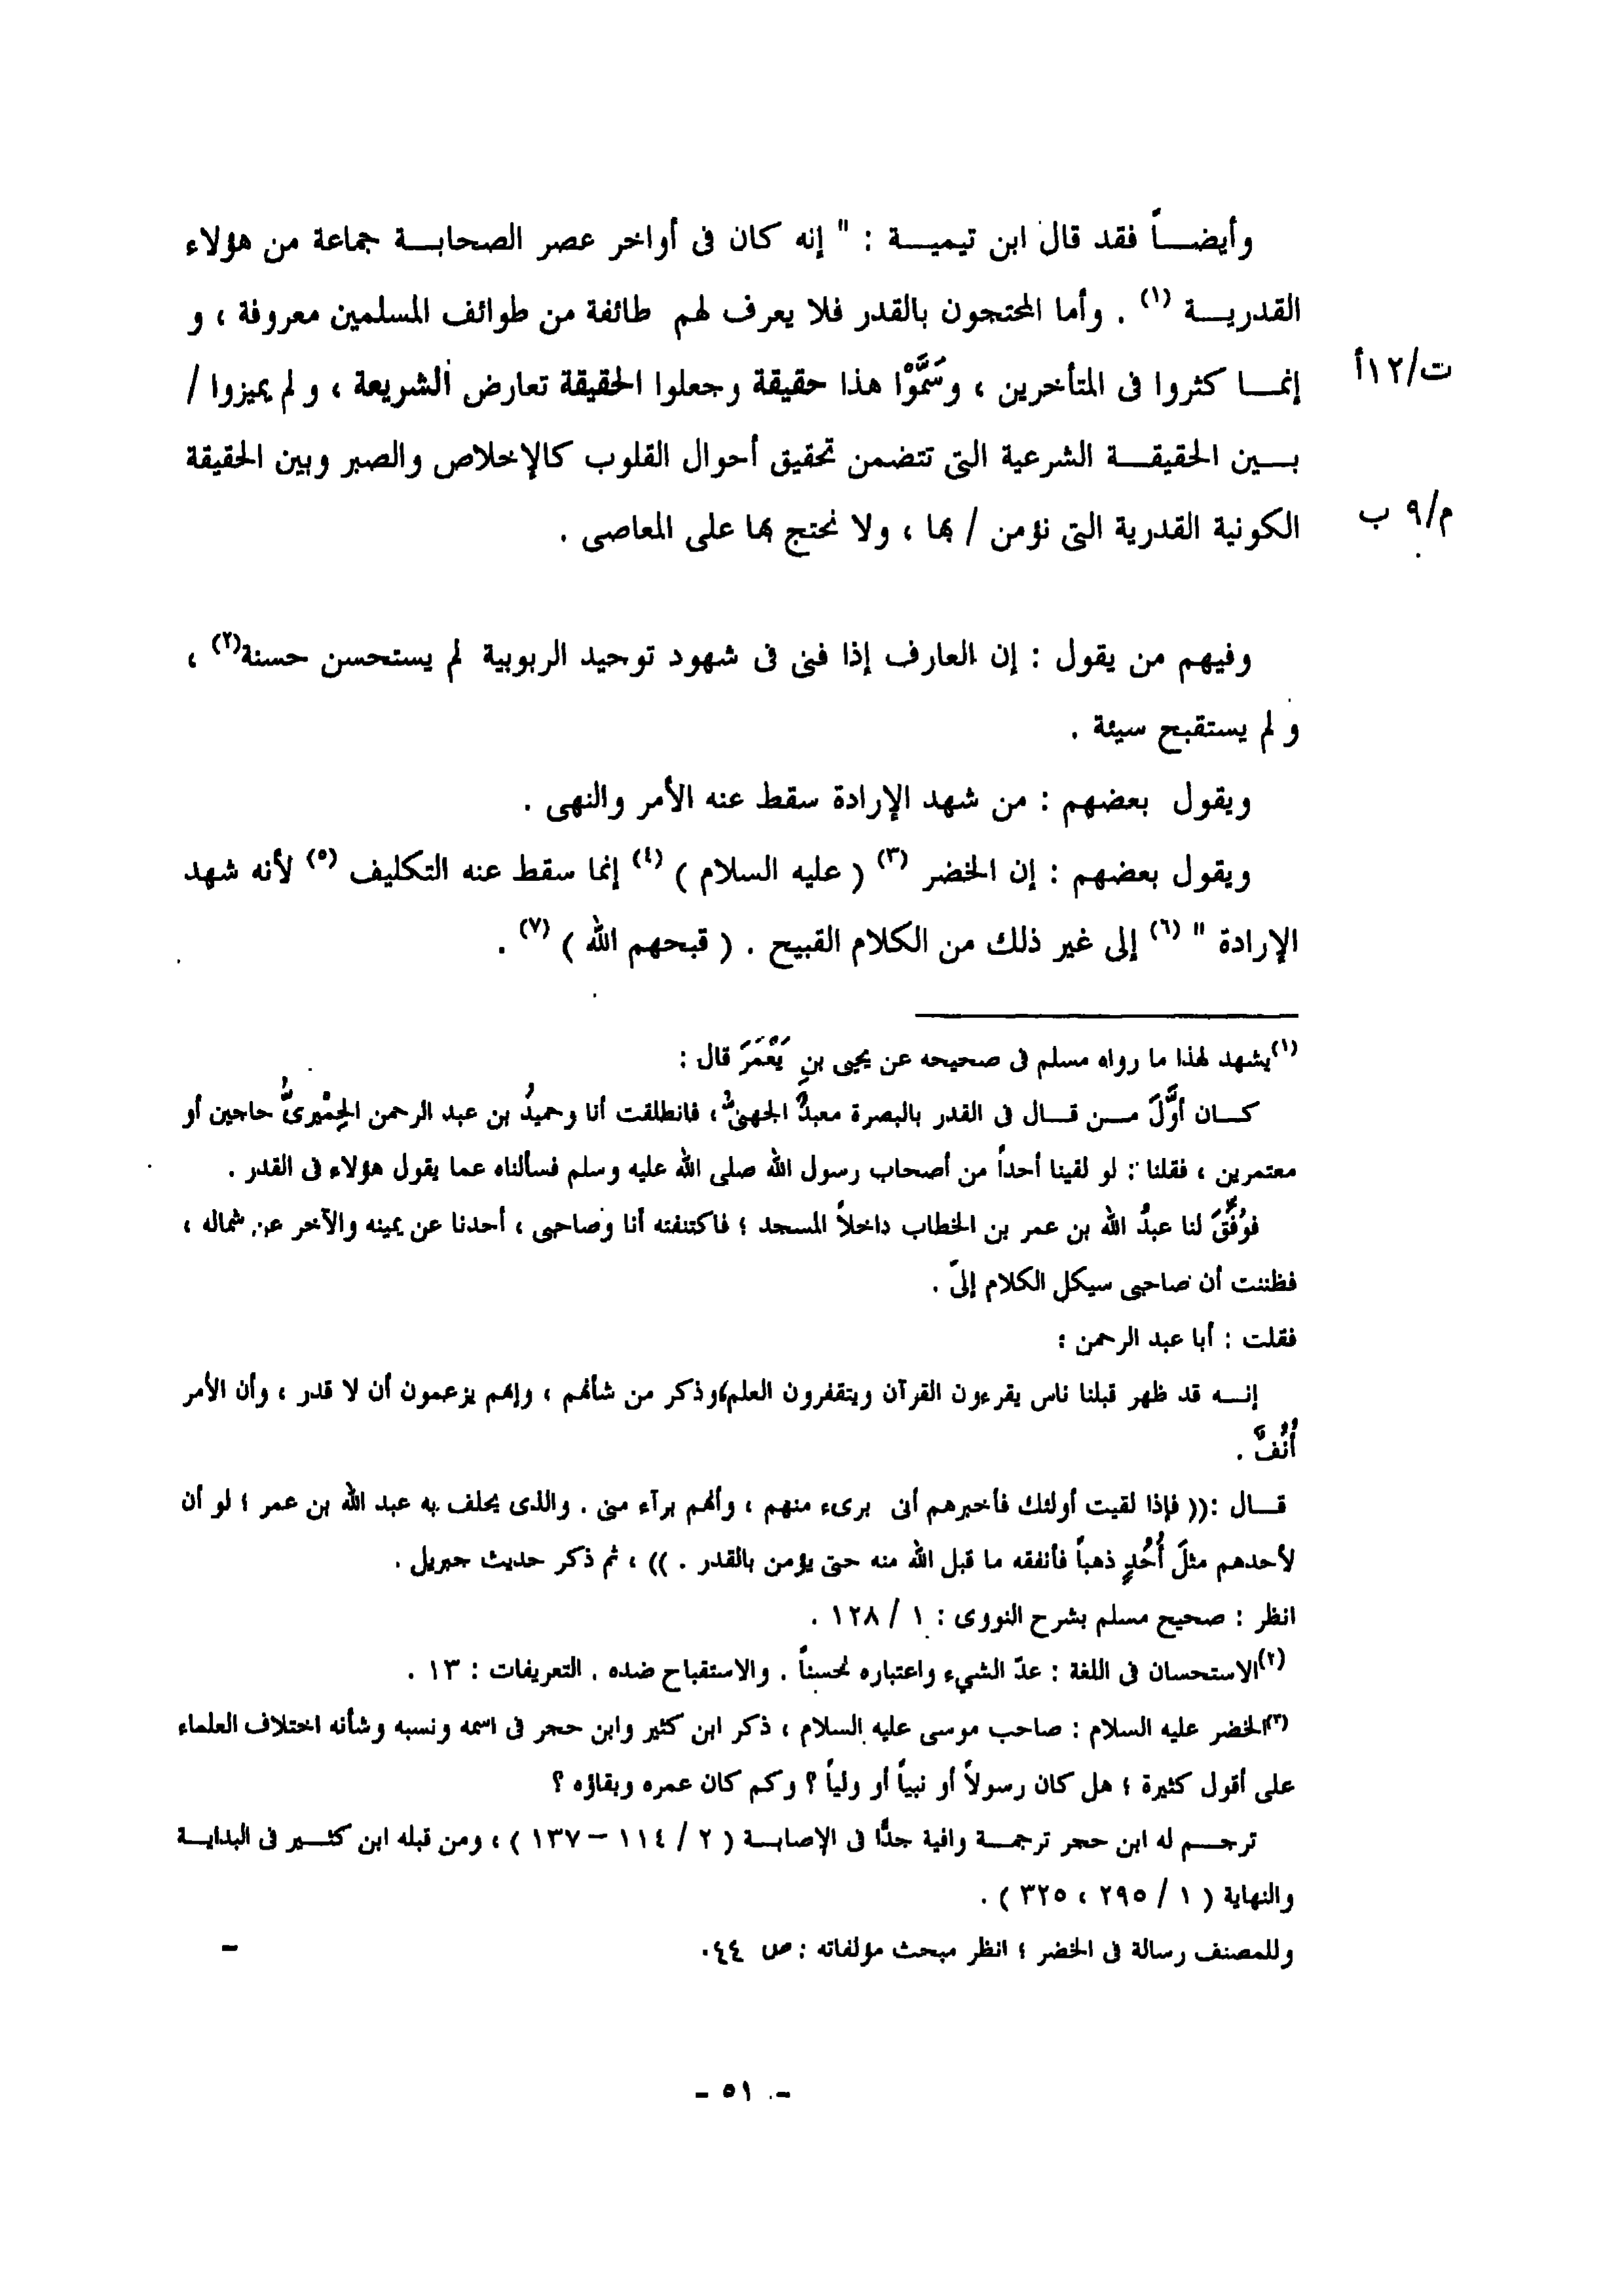 وأيضـــاً فقد قال ابن تيميـــة : " إنه كان فى أواخر عصر الصحابـــة جماعة من هؤلاء
القدريـــة (١) . وأما المحتجون بالقدر فلا يعرف لهم طائفة من طوائف المسلمين معروفة ، و
ت/١٢أ
إنمـــا كثروا فى المتأخرين ، وسَمَّوْا هذا حقيقة وجعلوا الحقيقة تعارض الشريعة ، و لم يميزوا /
بـــين الحقيقـــة الشرعية التى تتضمن تحقيق أحوال القلوب كالإخلاص والصبر وبين الحقيقة
م/٩ ب
الكونية القدرية التى نؤمن / بها ، ولا نحتج بها على المعاصى .
وفيهم من يقول : إن العارف إذا فنى فى شهود توحيد الربوبية لم يستحسن حسنة(٢) ،
و لم يستقبح سيئة .
ويقول بعضهم : من شهد الإرادة سقط عنه الأمر والنهى .
ويقول بعضهم : إن الخضر (٣) ( عليه السلام ) (٤) إنما سقط عنه التكليف (٥) لأنه شهد
الإرادة " (٦) إلى غير ذلك من الكلام القبيح . ( قبحهم الله ) (٧) .
(١)يشهد لهذا ما رواه مسلم فى صحيحه عن يحيى بنِ يَعْمَرَ قال :
كـــان أوَّلَ مـــن قـــال فى القدر بالبصرة معبدٌ الجهنىُّ ، فانطلقت أنا وحميدُ بن عبد الرحمن الحِمْيرىُّ حاجين أو
معتمرين ، فقلنا : لو لقينا أحداً من أصحاب رسول الله صلى الله عليه وسلم فسألناه عما يقول هؤلاء فى القدر .
فوُفِّقَ لنا عبدُ الله بن عمر بن الخطاب داخلاً المسجد ؛ فاكتنفته أنا وصاحبى ، أحدنا عن يمينه والآخر عن شماله ،
فظننت أن صاحبى سيكل الكلام إلىّ .
فقلت : أبا عبد الرحمن :
إنـــه قد ظهر قبلنا ناس يقرءون القرآن ويتقفرون العلم؛وذكر من شأنهم ، وإنهم يزعمون أن لا قدر ، وأن الأمر
أُنُفٌ .
قـــال :(( فإذا لقيت أولئك فأخبرهم أنى برىء منهم ، وأنهم برآء منى . والذى يحلف به عبد الله بن عمر ؛ لو أن
لأحدهم مثلَ أُحُدٍ ذهباً فأنفقه ما قبل الله منه حتى يؤمن بالقدر . )) ، ثم ذكر حديث جبريل .
انظر : صحيح مسلم بشرح النووى : ١ / ١٢٨ .
(٢)الاستحسان فى اللغة : عدّ الشيء واعتباره حسناً . والاستقباح ضده . التعريفات : ١٣ .
(٣)الخضر عليه السلام : صاحب موسى عليه السلام ، ذكر ابن كثير وابن حجر فى اسمه ونسبه وشأنه اختلاف العلماء
على أقول كثيرة ؛ هل كان رسولاً أو نبياً أو ولياً ؟ وكم كان عمره وبقاؤه ؟
ترجـــم له ابن حجر ترجمـــة وافية جدًّا فى الإصابـــة ( ٢ / ١١٤ – ١٣٧ ) ، ومن قبله ابن كثـــير فى البدايـــة
والنهاية ( ١ / ٢٩٥ ، ٣٢٥ ) .
وللمصنف رسالة فى الخضر ؛ انظر مبحث مؤلفاته : ص ٤٤. –
- ٥١ -